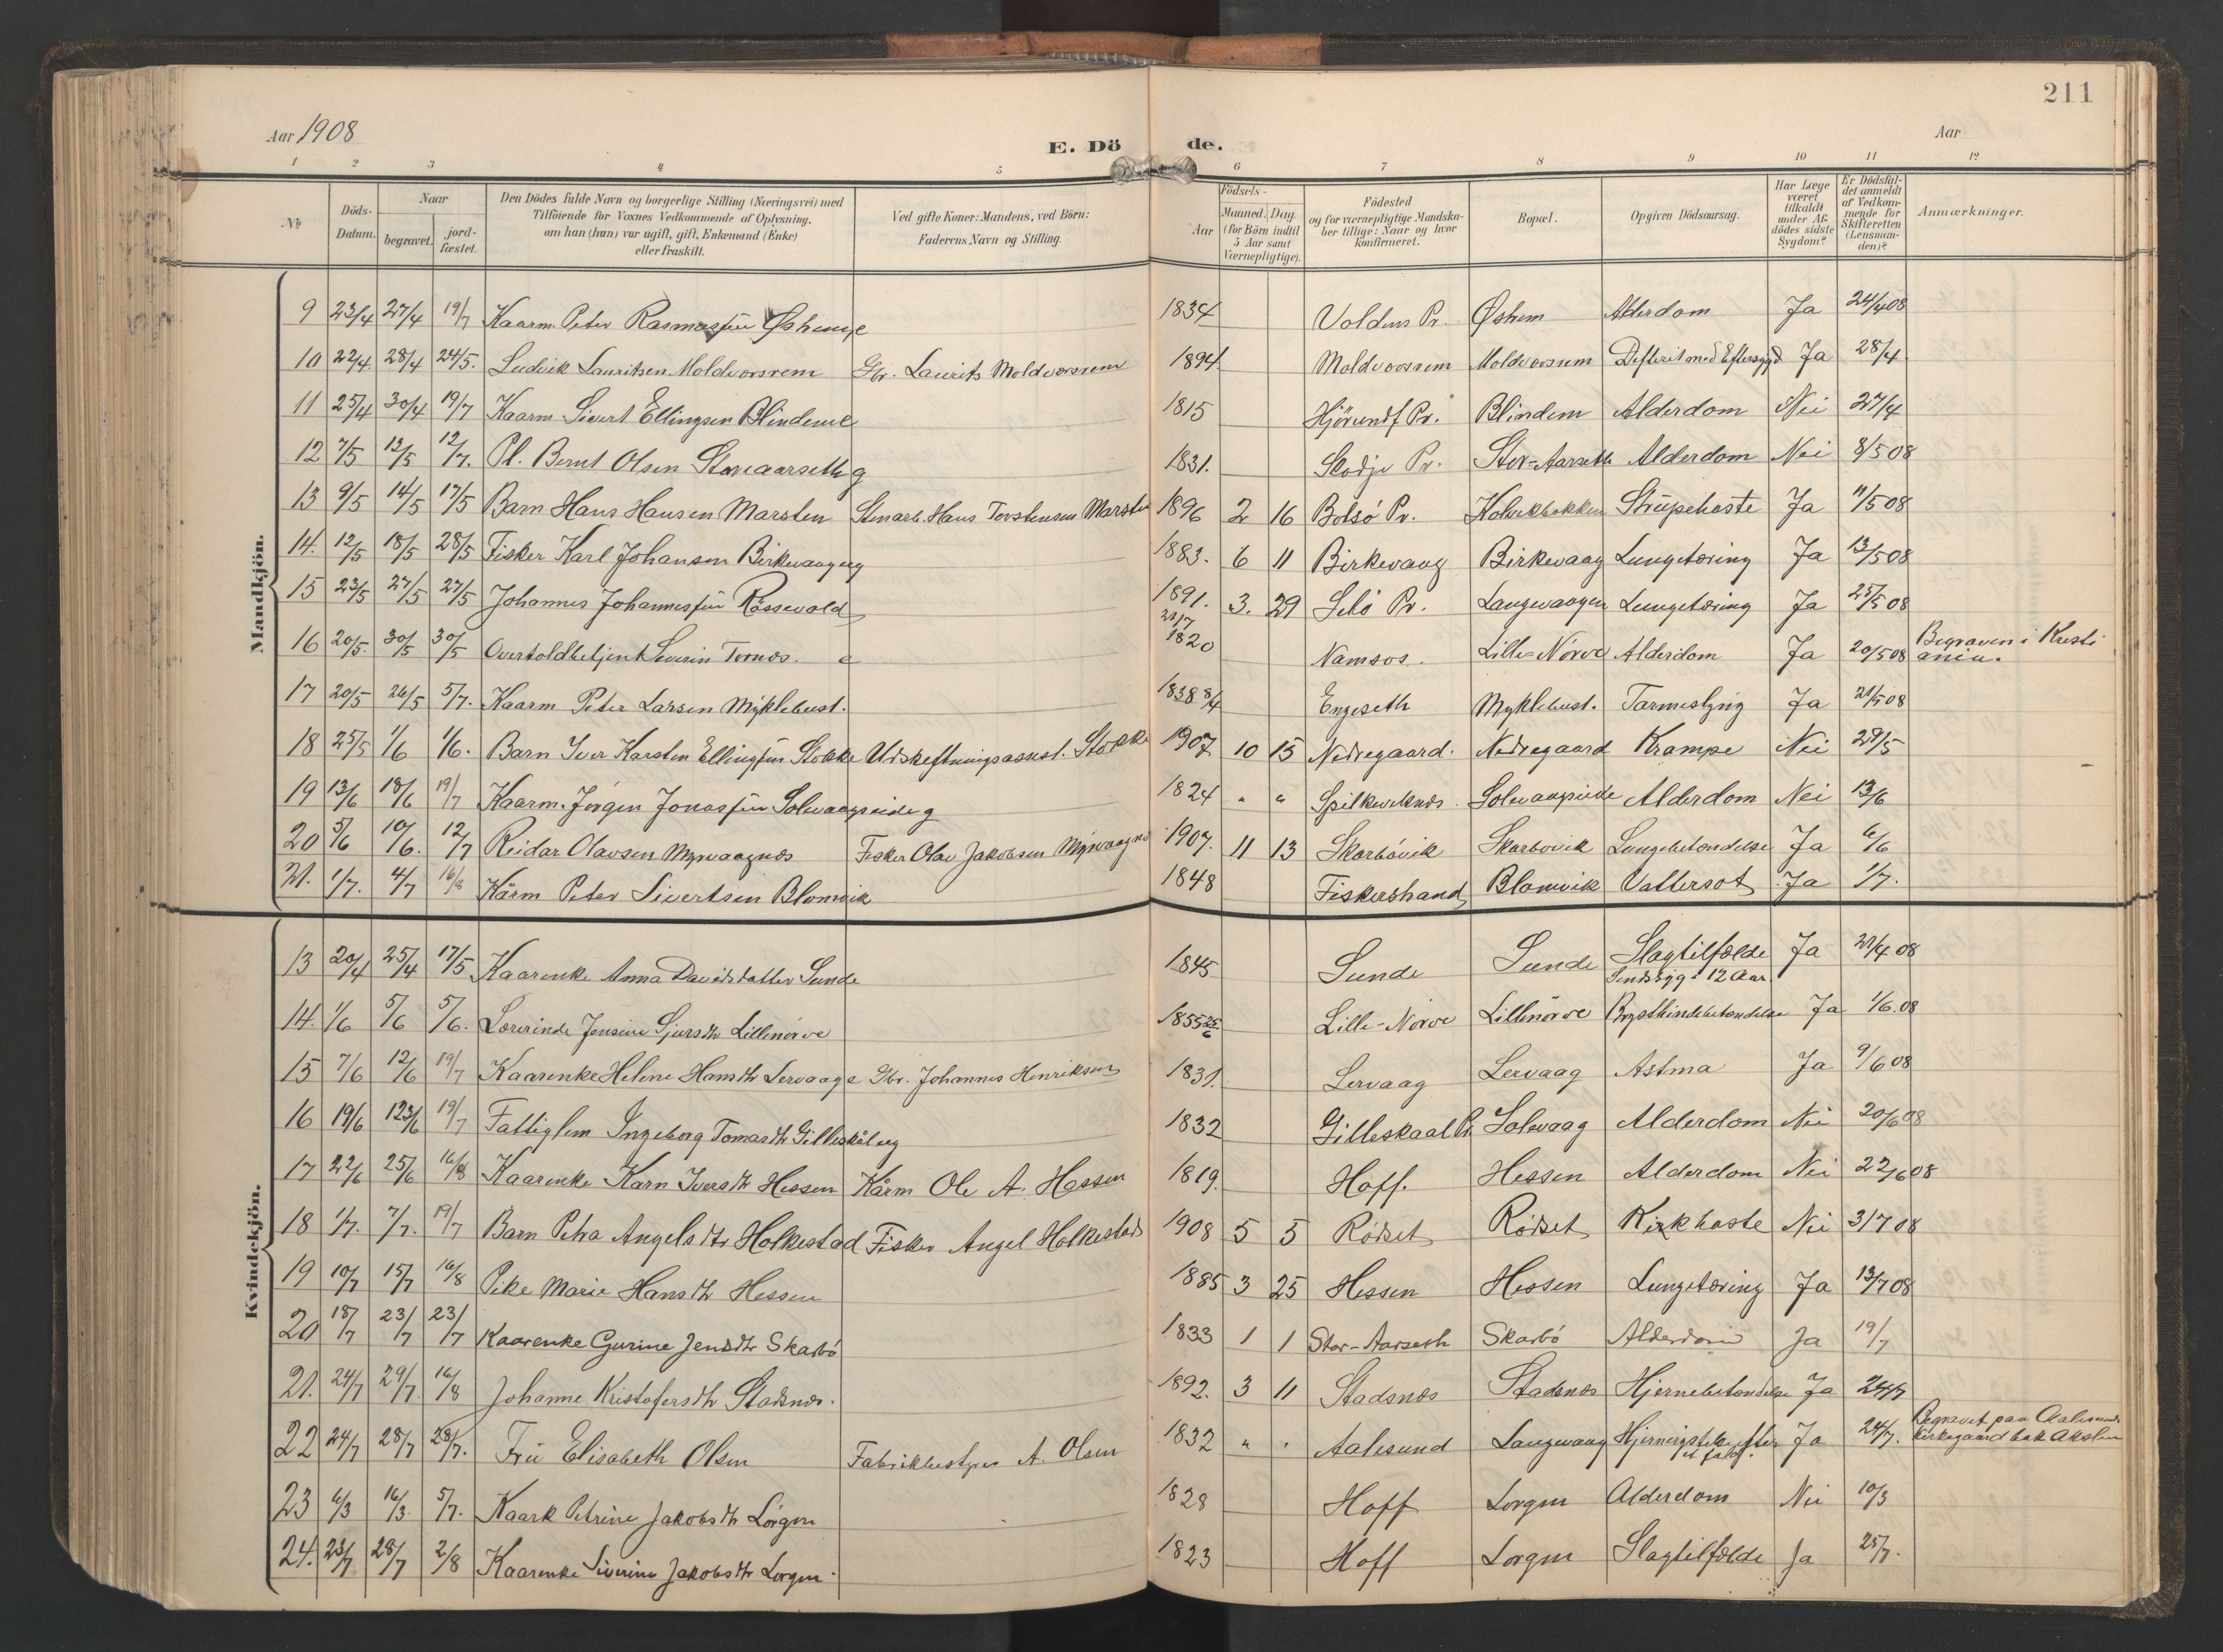 211
Aar 1908
E. Döde.
Aar
1 2 3 4 5 6 7 8 9 10 11 12
№
Döds-Datum.
Naar
begravet.
jord-fæstet.
Den Dödes fulde Navn og borgerlige Stilling (Næringsvei) med
Tilföiende for Voxnes Vedkommende af Oplysning,
om han (hun) var ugift, gift, Enkemand (Enke)
eller fraskilt.
Ved gifte Koner: Mandens, ved Börn:
Faderens Navn og Stilling.
Födsels-
Aar
Maaned. Dag.
(for Börn indtil
5 Aar samt
Værnepligtige).
Födested
og for værnepligtige Mandska-
ber tillige: Naar og hvor
konfirmeret.
Bopæl.
Opgiven Dödsaarsag.
Har Læge
været
tilkaldt
under Af-
dödes sidste
Sygdom?
Er Dödsfal-
det anmeldt
af Vedkom-
mende for
Skifteretten
(Lensman-
den)?
Anmærkninger.
Mandkjön.
9 23/4 27/4 19/7 Kaarm. Peter Rasmussen Øshem e 1834 Voldens Pr. Øshem Alderdom Ja 24/4 08
10 22/4 28/4 24/5. Ludvik Lauritsen Moldvorsrem Gbr. Laurits Moldvorsrem 1894 Moldvorsrem Moldvorsrem Defterit med Eftersygd Ja 28/4
11 25/4 30/4 19/7 Kaarm Sivert Ellingsen Blindem e 1815 Hjörundf Pr. Blindem Alderdom Nei 27/4
12 7/5 12/5 12/7. Pl. Bernt Olsen Storeaarseth g 1831. Skodje Pr. Stor-Aarseth Alderdom Nei 8/5 08
13 9/5 14/5 17/5 Barn Hans Hansen Marsten Stenarb. Hans Torstensen Marsten 1896 2 16 Bolsö Pr. Strupehoste Ja 11/5 08
14. 12/5 18/5 28/5 Fisker Karl Johansen Birkevaag ug 1883. 6 11 Birkevaag Birkevaag Lungetæring Ja 13/5 08
15 23/5 27/5 27/5 Johannes Johannessen Rössevold 1891. 3. 29 Selö Pr. Langevaagen Lungetæring Ja 25/5 08
16 20/5 30/5 30/5 Overtoldbetjent Severin Tornæs. e 21/7 1820 Namsos. Lille-Nörve Alderdom Ja 20/5 08 Begraven i Kristi
ania.
17 20/5 26/5 5/7. Kaarm Peter Larsen Myklebust. 1838 8/4 Engeseth Myklebust. Tarmeslyng Ja 21/5 08
18 25/5 1/6 1/6. Barn Iver Karsten Ellingsen Stokke Udskeftningsassist. Stokke 1907 10 15 Nedregaard. Nedregaard Krampe Nei 29/5
19 13/6 18/6 19/7 Kaarm. Jörgen Jonassen Solevaagseide g 1824 " " Spilkeviknæs. Solevaagseide Alderdom Nei 13/6
20 5/6 10/6. 12/7 Reidar Olavsen Myrvaagnæs Fisker Olav Jakobsen Myrvaagnes 1907. 11 13 Skarbövik Skarbovik Lungebetændelse Ja 6/6
21. 1/7. 4/7 16/8 Kårm Peter Sivertsen Blomvik 1848 Fiskershand Blomvik Vattersot Ja 1/7.
Kvindekjön.
13 20/4 25/4 17/5 Kaarenke Anna Davidsdatter Sunde 1845 Sunde Sunde Slagtilfælde Ja 21/4 08
Sindssyg i 12 Aar.
14. 1/6 5/6 5/6. Lærerinde Jensine Sjursdtr Lillenörve 1855 25/6 Lille-Nörve Lillenörve Brysthindebetændelse Ja 1/6.08
15 7/6 12/6 19/7 Kaarenke Helene Hansdtr Lervaag e Gbr. Johannes Henriksen 1831. Lervaag Lervaag Astma Ja 9/6 08
16 19/6 23/6 19/7 Fattiglem Ingeborg Tomasdtr Gilleskål ug 1832 Gilleskaal Pr. Solevaag Alderdom Nei 20/6 08
17 22/6 25/6 16/8 Kaarenke Karn Iversdtr Hessen Kårm Ole A. Hessen 1819. Hoff. Hessen Alderdom Nei 22/6 08
18 1/7. 7/7. 19/7 Barn Petra Angelsdtr Holkestad Fisker Angel Holkestad 1908 5 5 Rödset Rödset Kikhoste Nei 3/7 08
19 10/7 15/7 16/8 Pike Marie Hansdtr Hessen 1885 3 25 Hessen Hessen Lungetæring Ja 13/7 08
20 18/7 23/7 23/7 Kaarenke Gurine Jensdtr Skarbö 1833 1 1 Stor-Aarseth Skarbö Alderdom Ja 19/7
21. 24/7 29/7. 16/8 Johanne Kristofersdtr Stadsnæs. 1892. 3 11 Stadsnæs Stadsnæs Hjernebetændelse Ja 24/7
22 24/7 28/7 28/7. Frü Elisabeth Olsen Fabrikbestyrer A. Olsen 1832 " " Aalesund Langevaag Hjernerystelse efter Ja 24/7. Begravet paa Aalesunds
et fald. Kirkegaard bak Akslen
23 6/3 16/3. 5/7. Kaark Petrine Jakobsdtr Lörgen 1828 Hoff Lorgen Alderdom Nei 10/3
24. 23/7 28/7 2/8 Kaarenke Siverine Jakobsdtr Lorgen. 1823 Hoff Lorgen Slagtilfælde Ja 25/7.